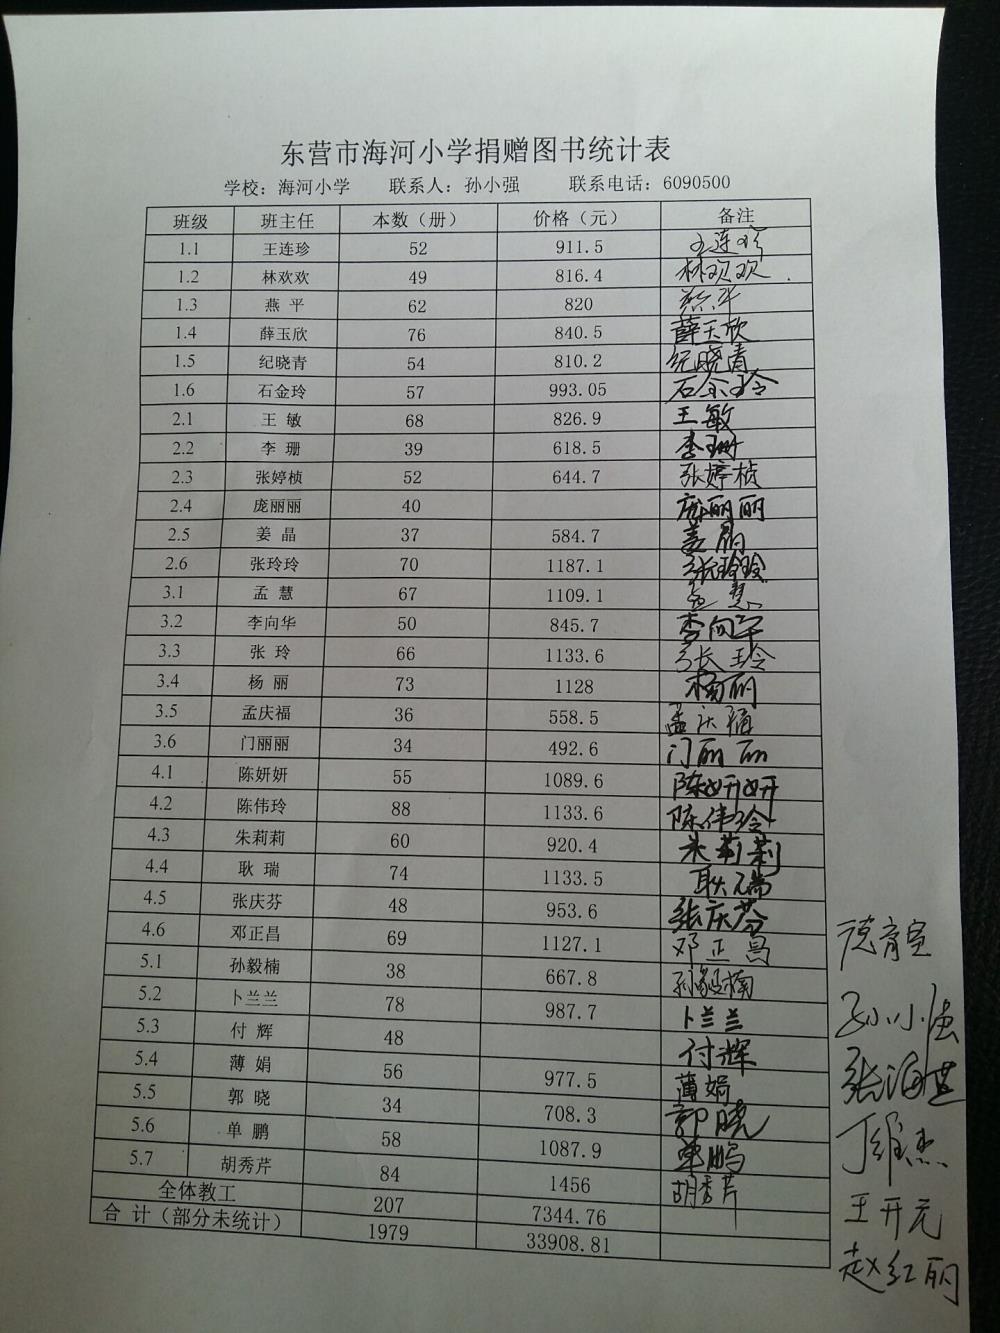 东营市海河小学捐赠图书统计表
学校：海河小学 联系人：孙小强 联系电话：6090500
班级 班主任 本数（册） 价格（元） 备注
1.1 王连珍 52 911.5 王连珍
1.2 林欢欢 49 816.4 林欢欢
1.3 燕 平 62 820 燕平
1.4 薛玉欣 76 840.5 薛玉欣
1.5 纪晓青 54 810.2 纪晓青
1.6 石金玲 57 993.05 石金玲
2.1 王 敏 68 826.9 王敏
2.2 李 珊 39 618.5 李珊
2.3 张婷桢 52 644.7 张婷桢
2.4 庞丽丽 40 庞丽丽
2.5 姜 晶 37 584.7 姜晶
2.6 张玲玲 70 1187.1 张玲玲
3.1 孟 慧 67 1109.1 孟慧
3.2 李向华 50 845.7 李向华
3.3 张 玲 66 1133.6 张玲
3.4 杨 丽 73 1128 杨丽
3.5 孟庆福 36 558.5 孟庆福
3.6 门丽丽 34 492.6 门丽丽
4.1 陈妍妍 55 1089.6 陈妍妍
4.2 陈伟玲 88 1133.6 陈伟玲
4.3 朱莉莉 60 920.4 朱莉莉
4.4 耿 瑞 74 1133.5 耿瑞
4.5 张庆芬 48 953.6 张庆芬
4.6 邓正昌 69 1127.1 邓正昌
5.1 孙毅楠 38 667.8 孙毅楠
5.2 卜兰兰 78 987.7 卜兰兰
5.3 付 辉 48 付辉
5.4 薄 娟 56 977.5 薄娟
5.5 郭 晓 34 708.3 郭晓
5.6 单 鹏 58 1087.9 单鹏
5.7 胡秀芹 84 1456 胡秀芹
全体教工 207 7344.76
合 计（部分未统计） 1979 33908.81
德育室
孙小强
张海
丁维杰
王开元
赵红丽